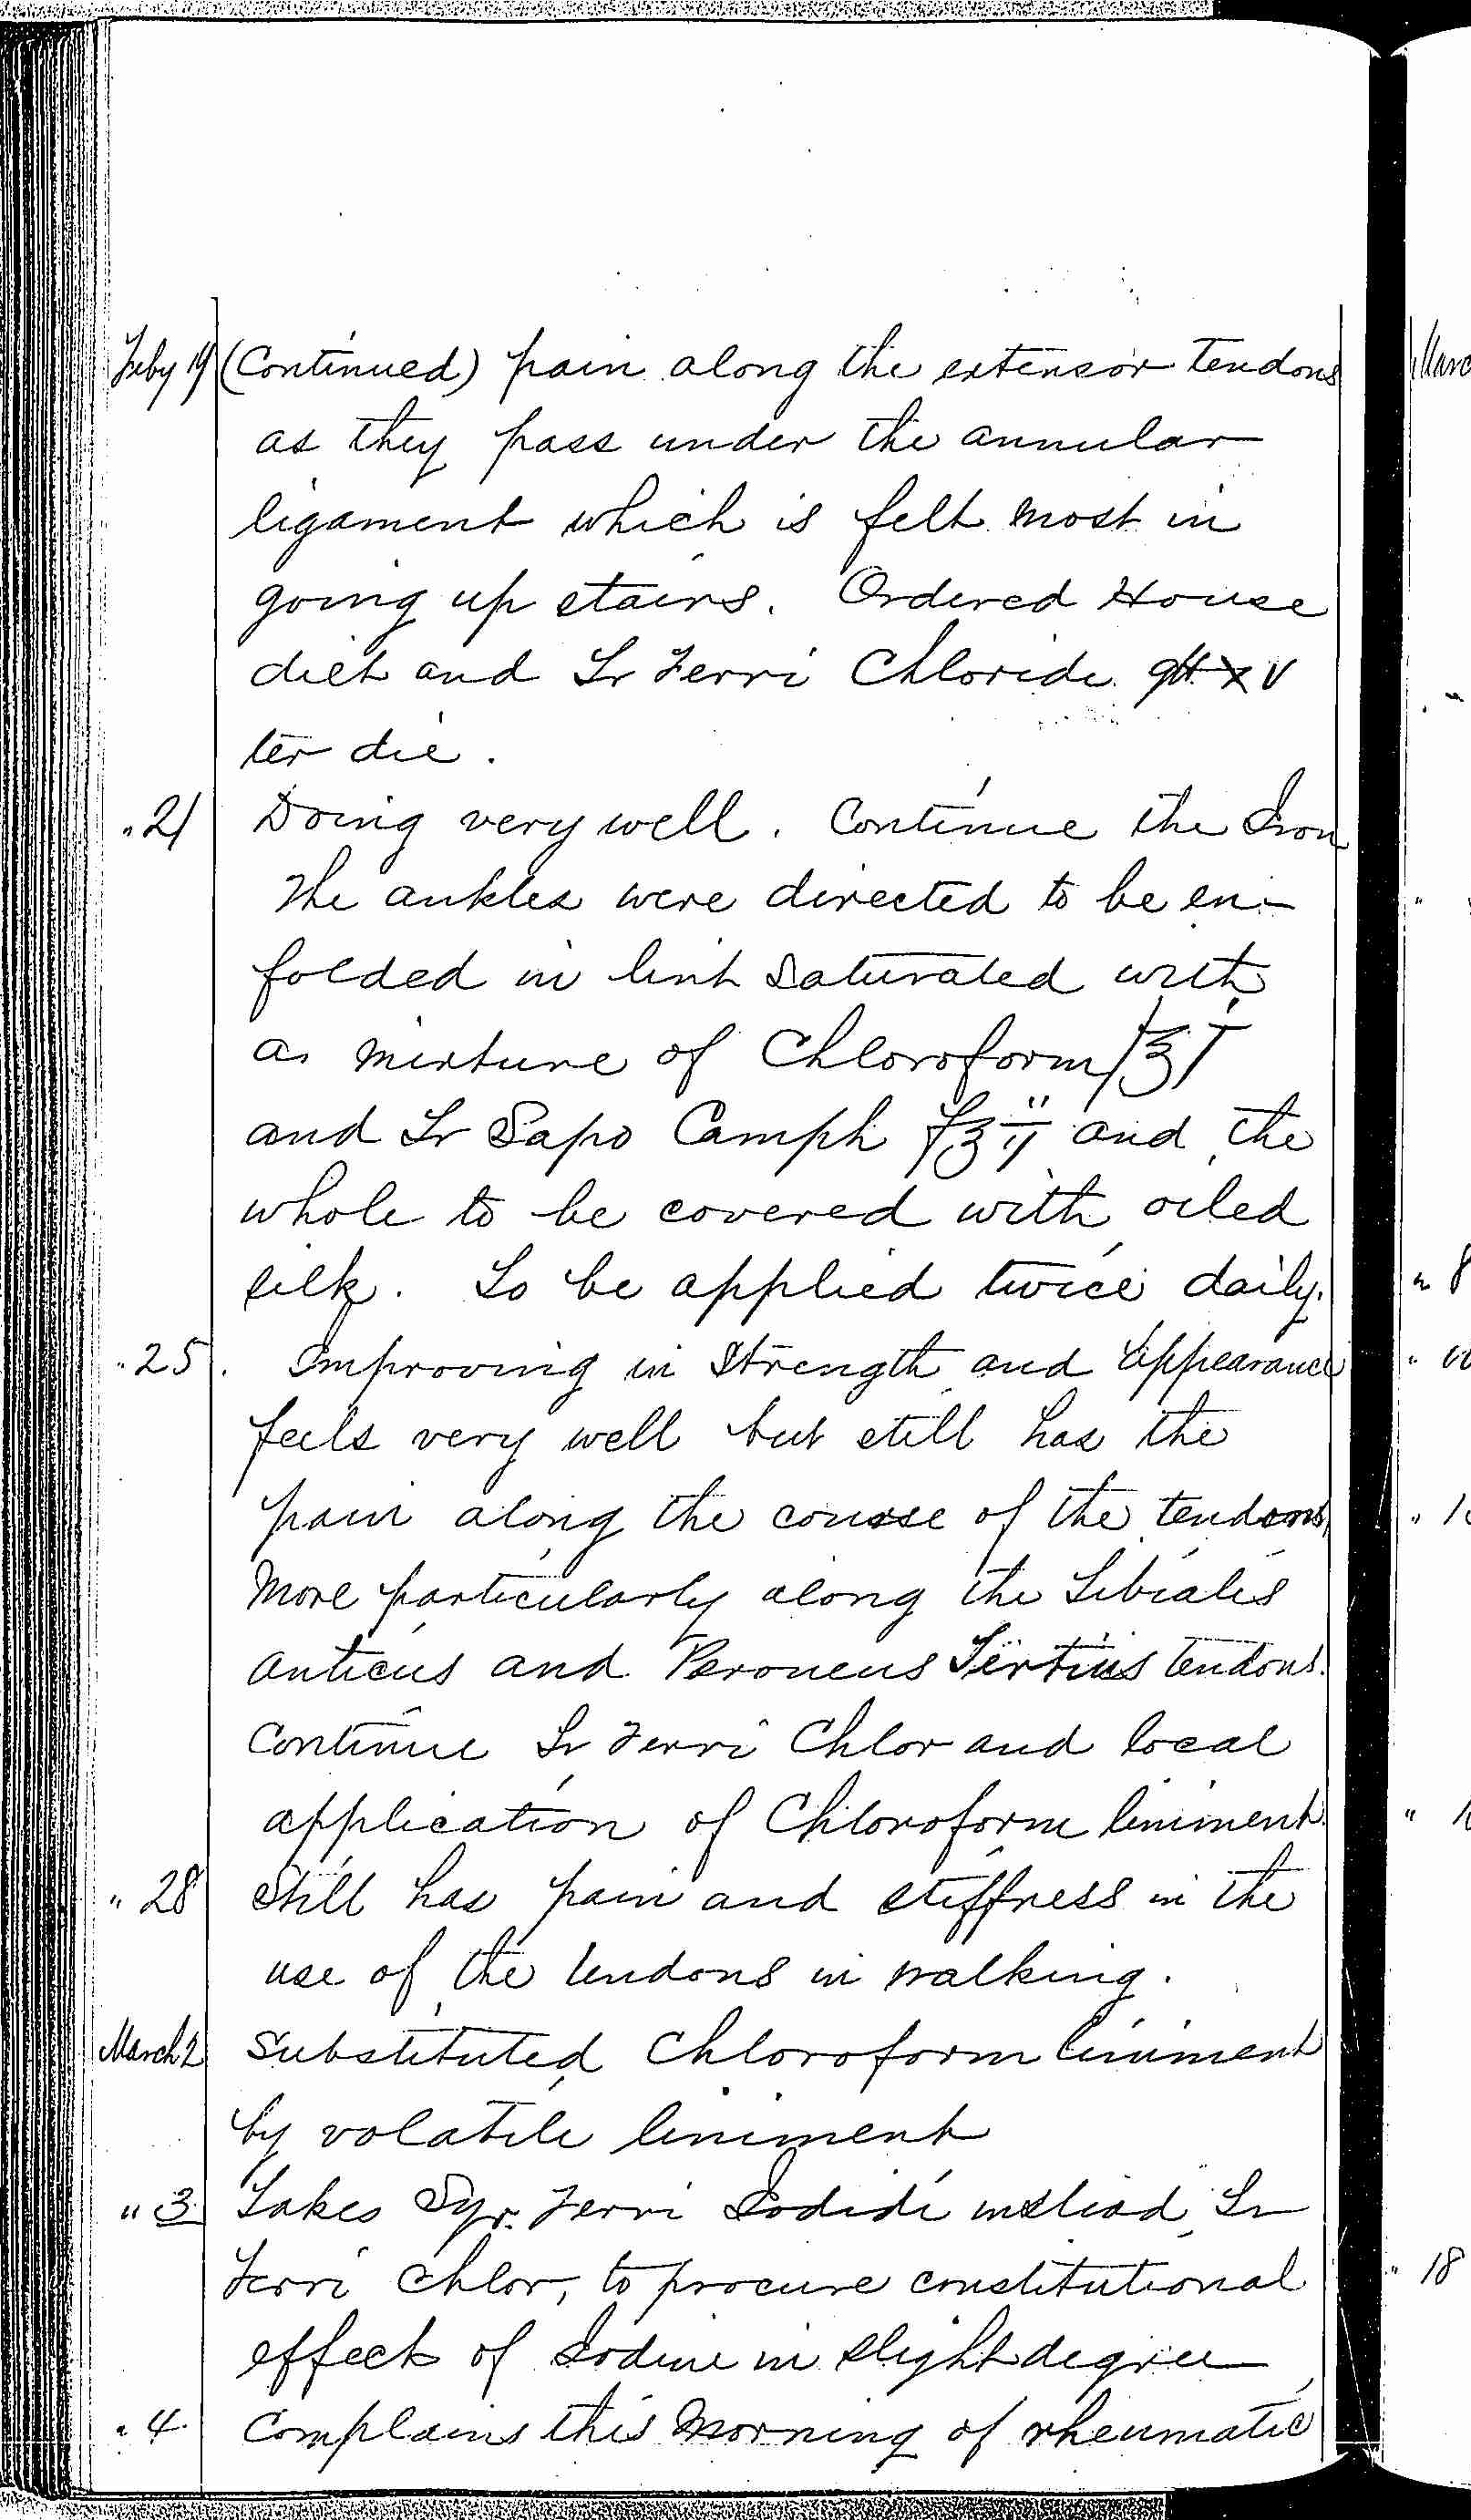 Feby 19 (Continued) pain along the extensor tendons
as they pass under the annular
ligament which is felt most in
going up stairs. Ordered House
diet and Tr Ferri Chloride gtt xv
ter die.
" 21 Doing very well. Continue the Iron
The ankles were directed to be en-
folded in lint saturated with
a mixture of Chloroform f℥i
and Tr Sapo Camph f℥ii and the
whole to be covered with oiled
silk. To be applied twice daily.
" 25. Improving in strength and appearance
feels very well but still has the
pain along the course of the tendons,
more particularly along the Tibialis
anticus and Peroneus Tertius tendons.
Continue Tr Ferri Chlor and local
application of Chloroform liniment.
" 28 Still has pain and stiffness in the
use of the tendons in walking.
March 2 Substituted Chloroform liniment
by volatile liniment
" 3 Takes Syr. Ferri Iodidi instead Tr
Ferri Chlor, to procure constitutional
effect of Iodine in slight degree
" 4. Complains this morning of rheumatic
" 8
" 18